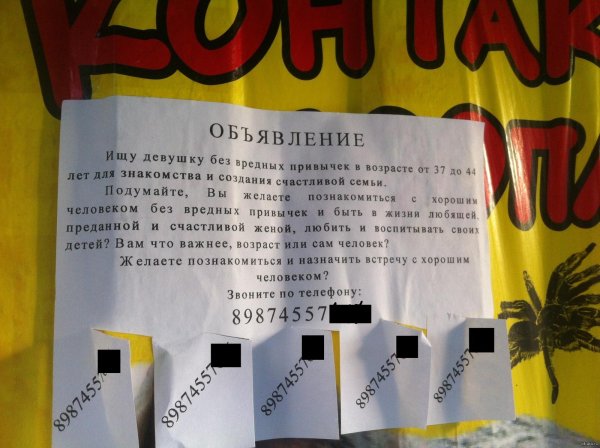 КОНТАК
ЗООПА
ОБЪЯВЛЕНИЕ
Ищу девушку без вредных привычек в возрасте от 37 до 44
лет для знакомства и создания счастливой семьи.
Подумайте, Вы желаете познакомиться с хорошим
человеком без вредных привычек и быть в жизни любящей,
преданной и счастливой женой, любить и воспитывать своих
детей? Вам что важнее, возраст или сам человек?
Желаете познакомиться и назначить встречу с хорошим
человеком?
Звоните по телефону:
89874557
89874557
89874557
89874557
89874557
89874557